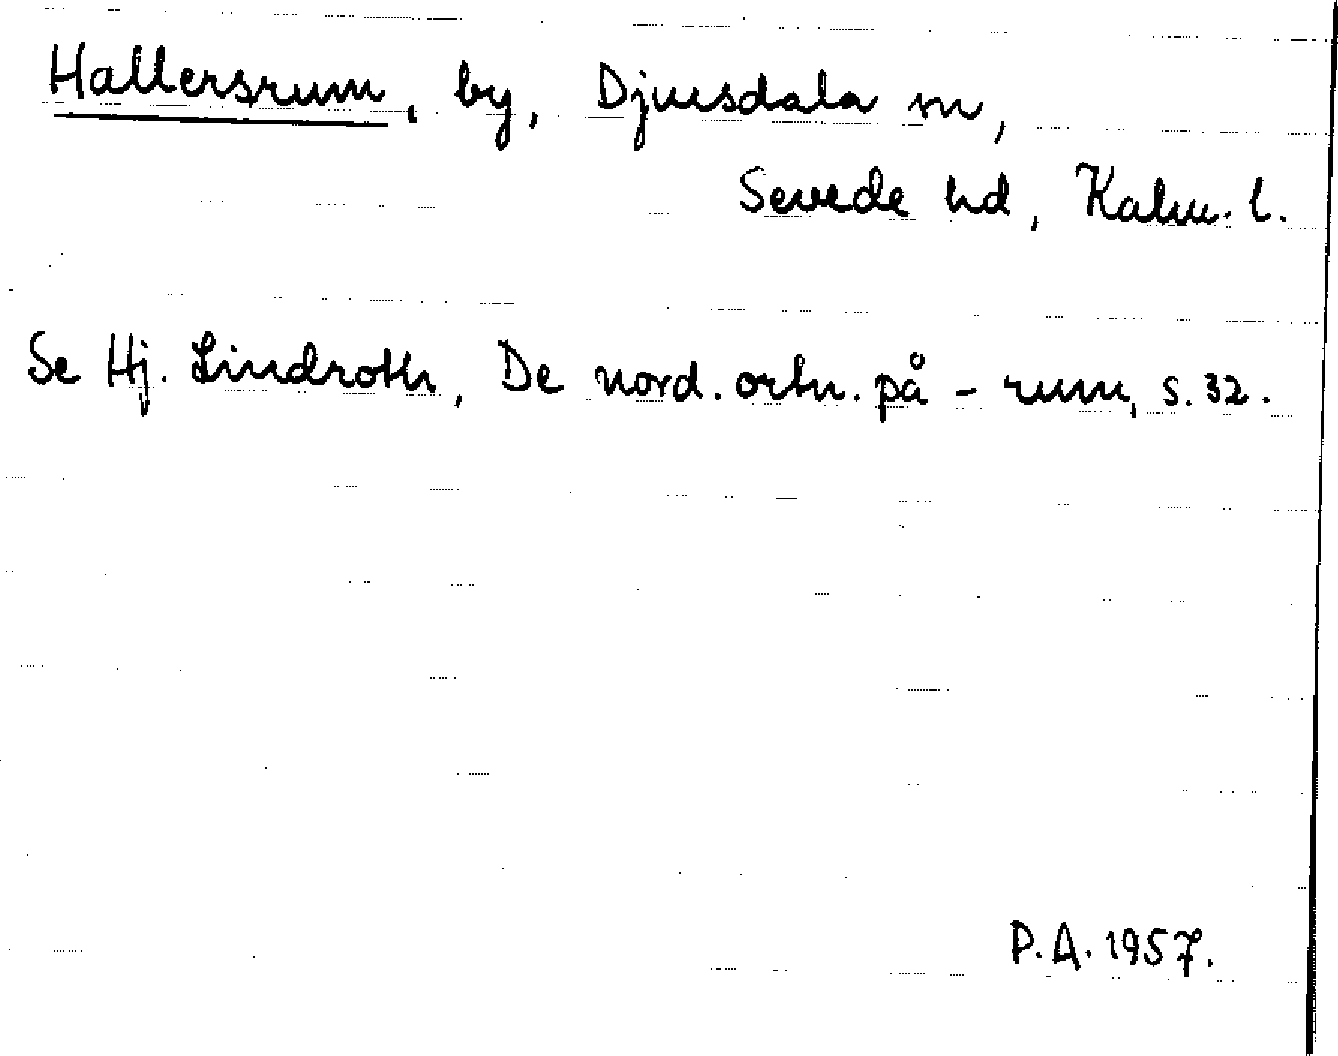 Hallersrum, by, Djursdala sn,
Sevede hd, Kalm. l.
Se Hj. Lindroth, De nord. ortn. på -rum, s. 32.
P.A. 1957.